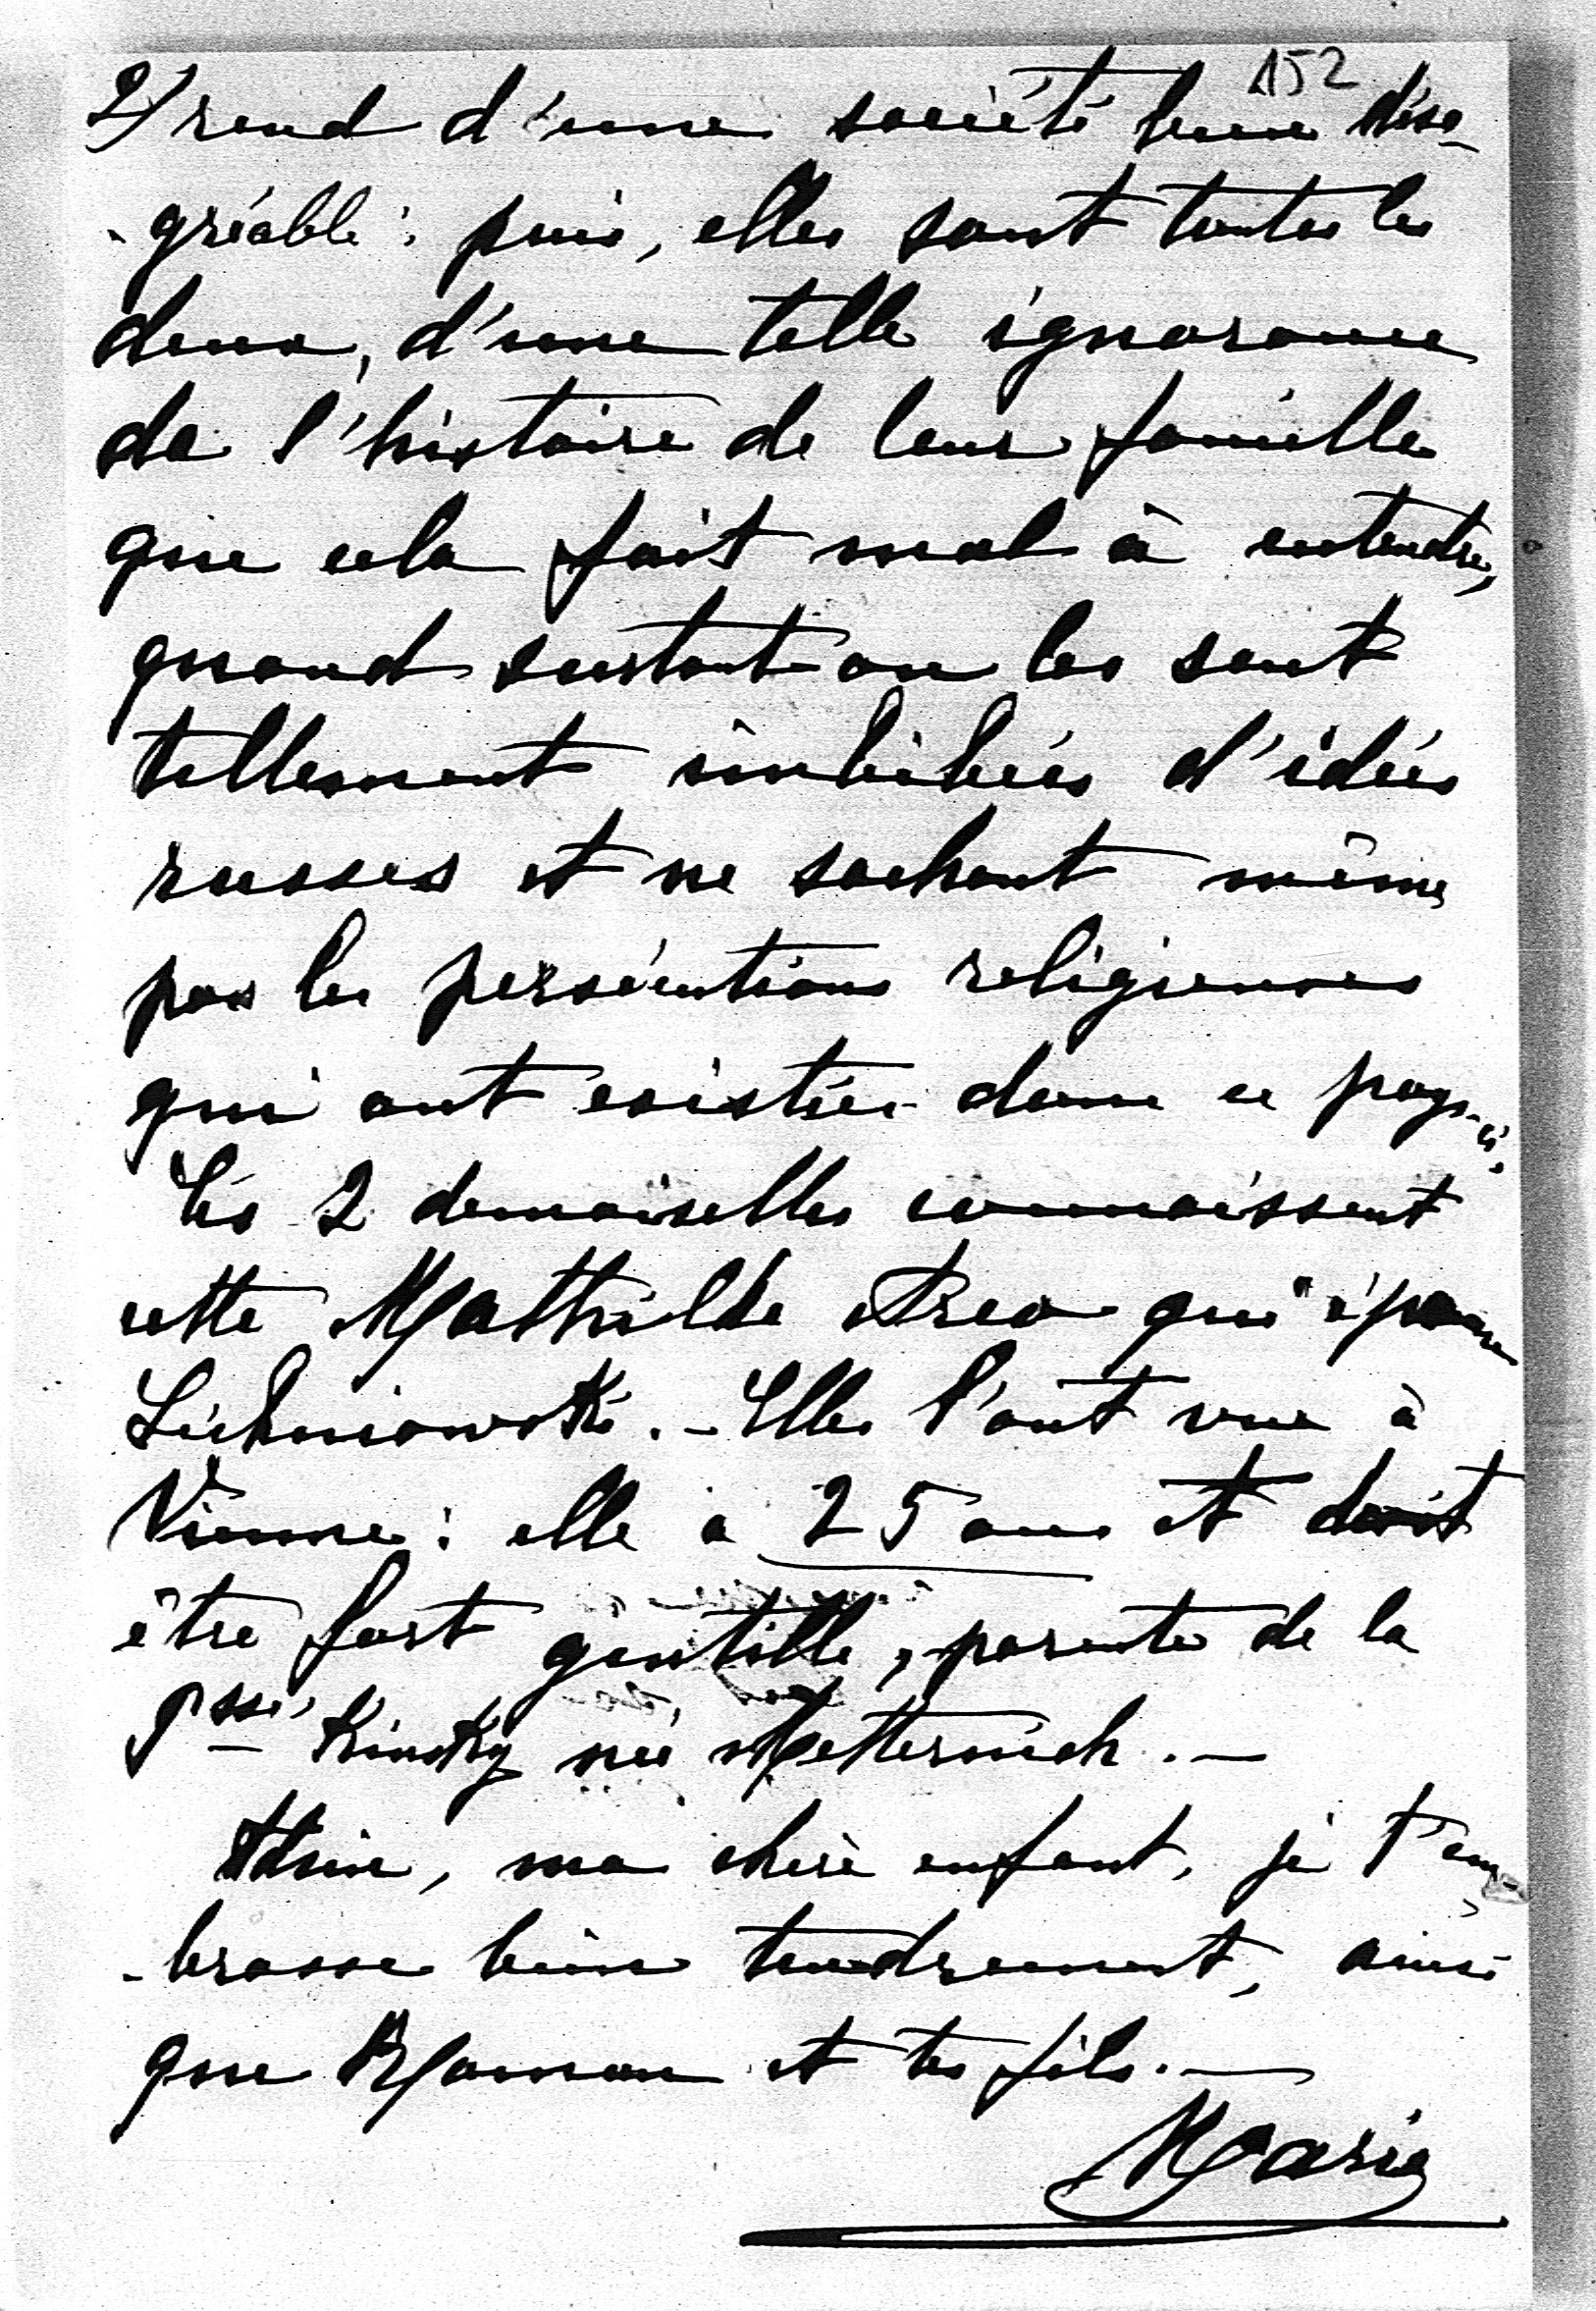 152
2/ rend d'une société bien désa-
-gréable: puis, elles sont toutes les
deux, d'une telle ignorance
de l'histoire de leur famille
que cela fait mal à entendre,
quand surtout on les sent
tellement imbibées d'idées
russes et ne sachant même
pas les persécutions religieuses
qui ont existées dans ce pays-ci.
Les 2 demoiselles connaissent
cette Mathilde Arco qui épouse
Lichnowski. - Elles l'ont vue à
Vienne: elle a 25 ans et doit
être fort gentille, parente de la
Psse Kinsky née Metternich. -
Adieu, ma chère enfant, je t'em-
-brasse bien tendrement, ainsi
que Roman et tes fils. -
Marie